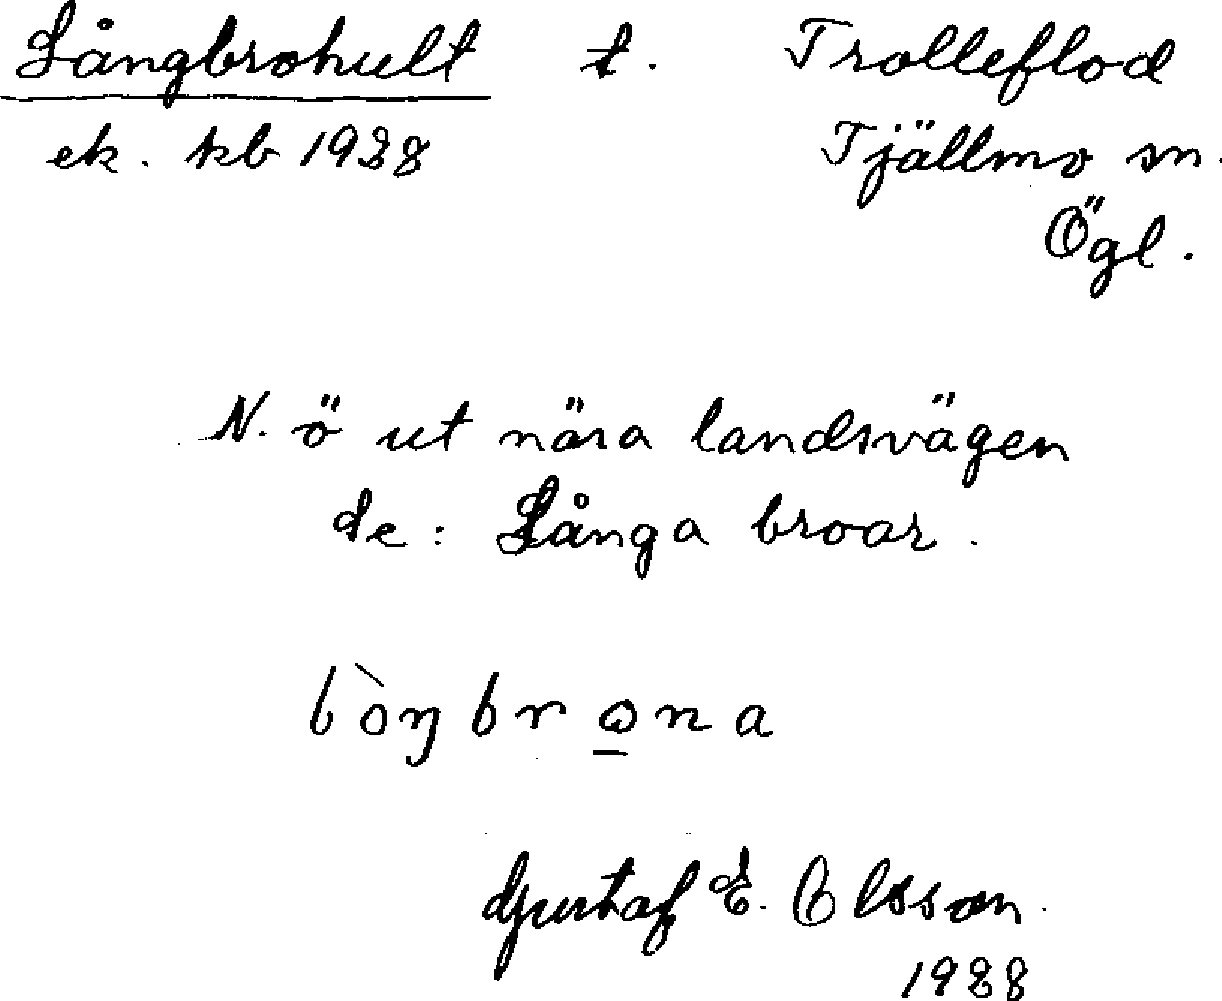 Långbrohult t. Trolleflod
ek. kb 1928 Tjällmo sn.
Ögl.
N. ö ut nära landsvägen
de: Långa broar.
lòŋbrωna
Gustaf E. Olsson.
1928